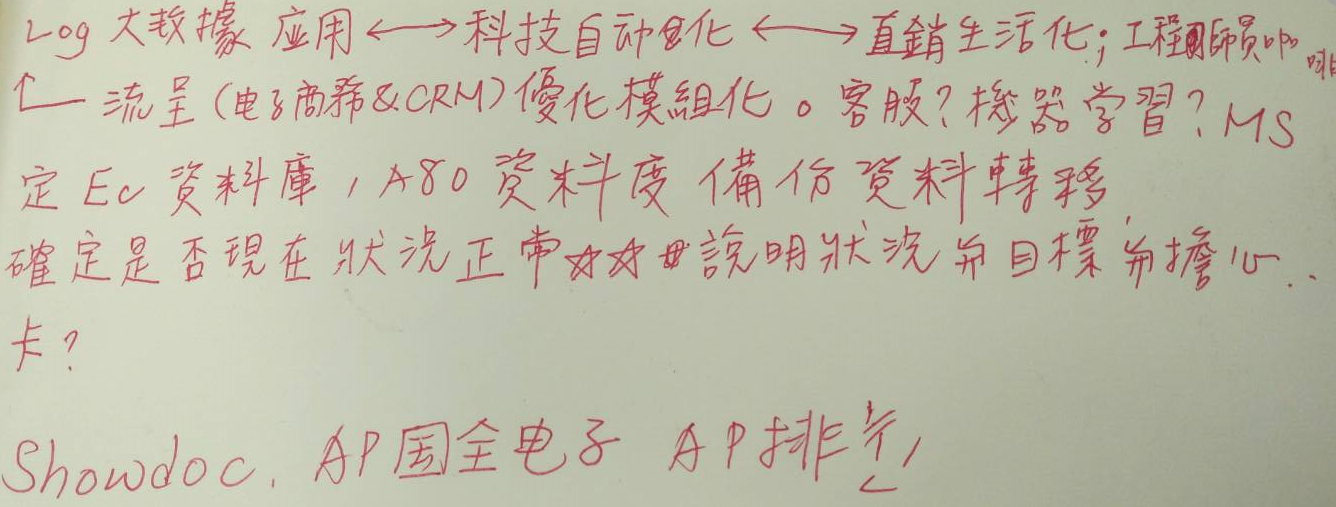 Log 大数據 应用 ←→ 科技自动化 ←→ 直銷生活化; 工程師員咖啡
流呈 (电子商務&CRM) 優化模組化。客服? 機器学習? MS
定 Ec 資料庫, A80 資料度 備份資料轉移
確定是否現在狀況正常☆☆ 說明狀況并目標并擔心..
卡?
Showdoc. AP国全电子 AP排